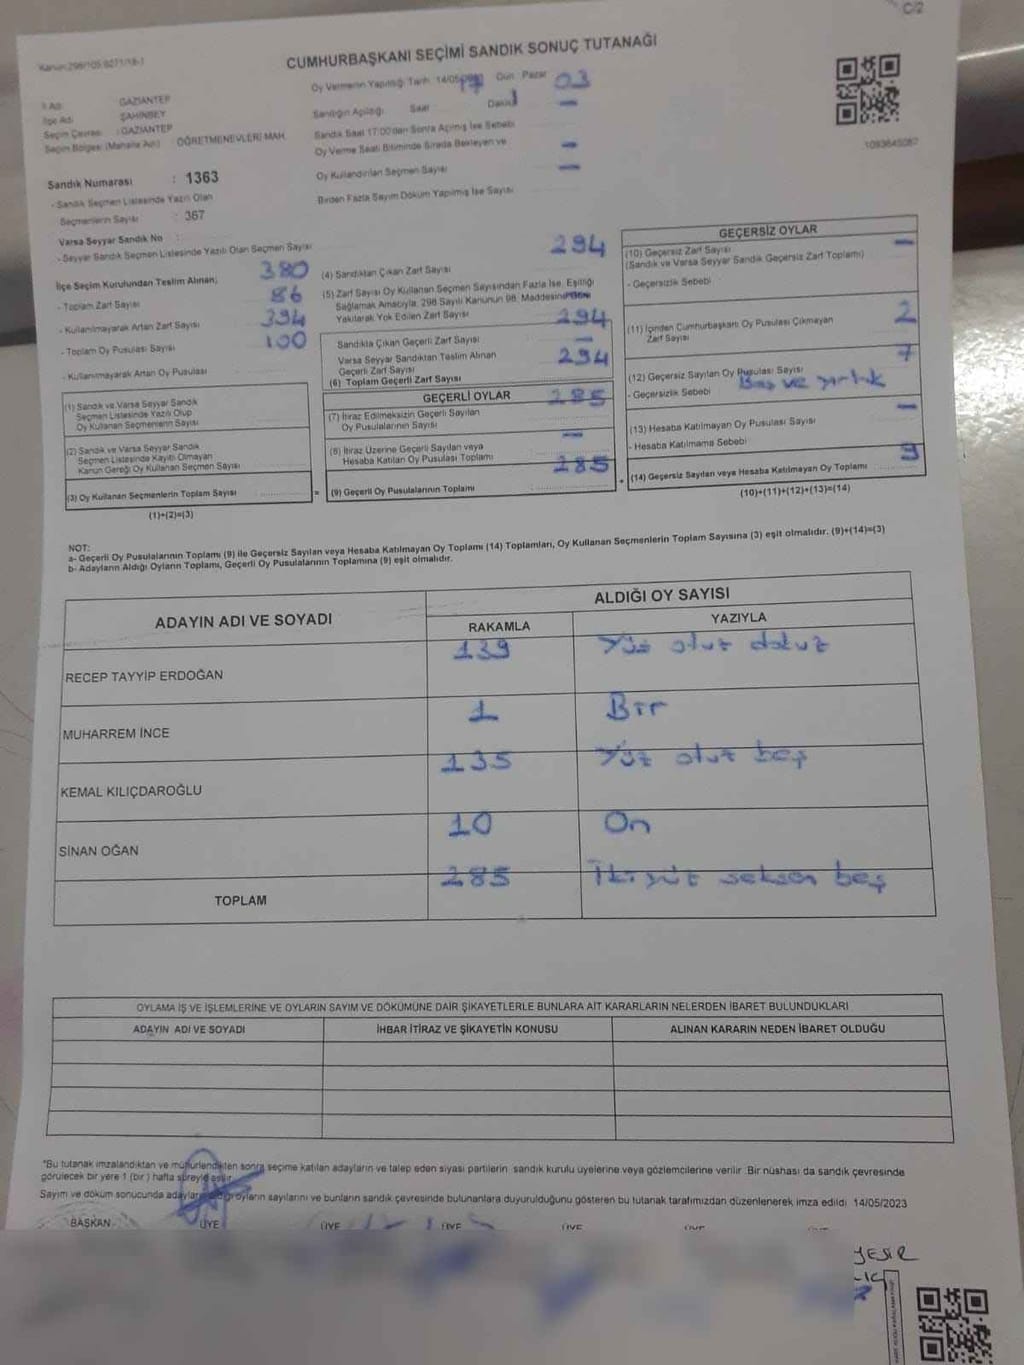 C/2
CUMHURBAŞKANI SEÇİMİ SANDIK SONUÇ TUTANAĞI
İl Adı : GAZİANTEP
İlçe Adı : ŞAHİNBEY
Seçim Çevresi : GAZİANTEP
Seçim Bölgesi (Mahalle Adı) : ÖĞRETMENEVLERİ MAH.
Sandık Numarası : 1363
- Sandık Seçmen Listesinde Yazılı Olan
Seçmenlerin Sayısı : 367
Varsa Seyyar Sandık No :
- Seyyar Sandık Seçmen Listesinde Yazılı Olan Seçmen Sayısı
Oy Vermenin Yapıldığı Tarih 14/05/ Gün Pazar 03
Sandığın Açıldığı Saat 17 Dakika
Sandık Saat 17:00'den Sonra Açılmış İse Sebebi
Oy Verme Saati Bitiminde Sırada Bekleyen ve
Oy Kullandırılan Seçmen Sayısı
Birden Fazla Sayım Döküm Yapılmış İse Sayısı
1093645087
İlçe Seçim Kurulundan Teslim Alınan; 380
- Toplam Zarf Sayısı 86
- Kullanılmayarak Artan Zarf Sayısı 394
- Toplam Oy Pusulası Sayısı 100
- Kullanılmayarak Artan Oy Pusulası
(1) Sandık ve Varsa Seyyar Sandık
Seçmen Listesinde Yazılı Olup
Oy Kullanan Seçmenlerin Sayısı
(2) Sandık ve Varsa Seyyar Sandık
Seçmen Listesinde Kayıtlı Olmayan
Kanun Gereği Oy Kullanan Seçmen Sayısı
(3) Oy Kullanan Seçmenlerin Toplam Sayısı
=
(1)+(2)=(3)
294
(4) Sandıktan Çıkan Zarf Sayısı
(5) Zarf Sayısı Oy Kullanan Seçmen Sayısından Fazla İse, Eşitliği
Sağlamak Amacıyla, 298 Sayılı Kanunun 98. Maddesine Göre
Yakılarak Yok Edilen Zarf Sayısı 294
Sandıkta Çıkan Geçerli Zarf Sayısı
Varsa Seyyar Sandıktan Teslim Alınan
Geçerli Zarf Sayısı 294
(6) Toplam Geçerli Zarf Sayısı
GEÇERLİ OYLAR 285
(7) İtiraz Edilmeksizin Geçerli Sayılan
Oy Pusulalarının Sayısı
(8) İtiraz Üzerine Geçerli Sayılan veya
Hesaba Katılan Oy Pusulası Toplamı 285
(9) Geçerli Oy Pusulalarının Toplamı
+
GEÇERSİZ OYLAR
(10) Geçersiz Zarf Sayısı
(Sandık ve Varsa Seyyar Sandık Geçersiz Zarf Toplamı)
- Geçersizlik Sebebi
(11) İçinden Cumhurbaşkanı Oy Pusulası Çıkmayan 2
Zarf Sayısı
7
(12) Geçersiz Sayılan Oy Pusulası Sayısı
- Geçersizlik Sebebi Boş ve yırtık
(13) Hesaba Katılmayan Oy Pusulası Sayısı
- Hesaba Katılmama Sebebi
9
(14) Geçersiz Sayılan veya Hesaba Katılmayan Oy Toplamı
(10)+(11)+(12)+(13)=(14)
NOT:
a- Geçerli Oy Pusulalarının Toplamı (9) ile Geçersiz Sayılan veya Hesaba Katılmayan Oy Toplamı (14) Toplamları, Oy Kullanan Seçmenlerin Toplam Sayısına (3) eşit olmalıdır. (9)+(14)=(3)
b- Adayların Aldığı Oyların Toplamı, Geçerli Oy Pusulalarının Toplamına (9) eşit olmalıdır.
ADAYIN ADI VE SOYADI
ALDIĞI OY SAYISI
RAKAMLA YAZIYLA
RECEP TAYYİP ERDOĞAN 139 Yüz otuz dokuz
MUHARREM İNCE 1 Bir
KEMAL KILIÇDAROĞLU 135 Yüz otuz beş
SİNAN OĞAN 10 On
TOPLAM 285 İki yüz seksen beş
OYLAMA İŞ VE İŞLEMLERİNE VE OYLARIN SAYIM VE DÖKÜMÜNE DAİR ŞİKAYETLERLE BUNLARA AİT KARARLARIN NELERDEN İBARET BULUNDUKLARI
ADAYIN ADI VE SOYADI İHBAR İTİRAZ VE ŞİKAYETİN KONUSU ALINAN KARARIN NEDEN İBARET OLDUĞU
*Bu tutanak imzalandıktan ve mühürlendikten sonra seçime katılan adayların ve talep eden siyasi partilerin sandık kurulu üyelerine veya gözlemcilerine verilir. Bir nüshası da sandık çevresinde
görülecek bir yere 1 (bir) hafta süreyle asılır.
Sayım ve döküm sonucunda adayların aldığı oyların sayılarını ve bunların sandık çevresinde bulunanlara duyurulduğunu gösteren bu tutanak tarafımızdan düzenlenerek imza edildi. 14/05/2023
BAŞKAN ÜYE ÜYE ÜYE ÜYE ÜYE ÜYE